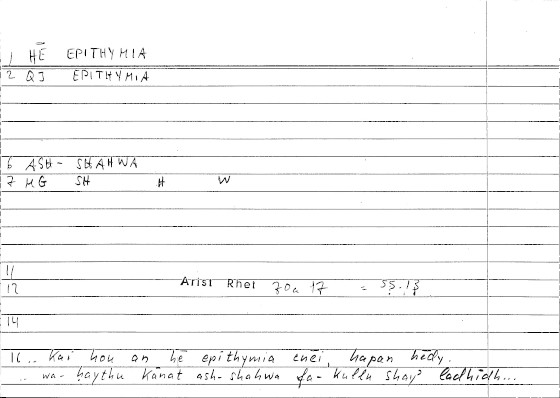 1 HĒ EPITHYMIA
2 QJ EPITHYMIA
6 ASH- SHAHWA
7 MG SH H W
11
12 Arist Rhet 70a 17 = 55.13
14
16 .. kai hou an hē epithymia enei, hapan hēdy.
.. wa- ḥaythu kānat ash-shahwa fa- kullu shayʾ ladhīdh...